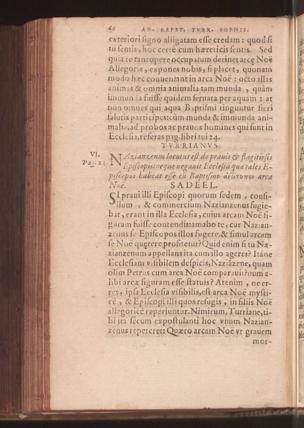 62 AD. REPET. TVRR. SOPHIS.
exteriori signo alligatam esse credam: quod si
tu sentis, hoc certè cum hæreticis sentis. Sed
quia te tantopere occupatum detinet arca Noë
Allegoria, expones nobis, si placet, quonam
modo hæc conueniant in arca Noë: octo illis
animas & omnia animalia tam munda, quàm
immunda fuisse quidem seruata per aquam: at
non omnes qui aqua Baptismi tinguntur fieri
salutis participes: cùm munda & immunda ani-
malia, ad probos ac prauos homines qui sunt in
Ecclesia, referas pag. libri tui 24.
TVRRIANVS.
VI.
Pag. 21.
Nazianzenum locutus est de prauis & flagitiosis
Episcopis: neque negauit Ecclesiã quæ tales E-
piscopos habeat esse cũ Baptismo
Noë.
SADEEL.
SI praui illi Episcopi quorum sedem, consi-
lium, & commercium Nazianzenus fugie-
bat, erant in illa Ecclesia, cuius arcam Noë fi-
guram fuisse contendit ambo te, cur Nazian-
zenus se Episcopos illos fugere, & simul arcam
se Noë quærere profitetur? Quid enim si tu Na-
zianzenum appellans ita cum illo ageres? Itáne
Ecclesiam visibilem despicis, Nazianzene, quam
olim Petrus cum arca Noë comparauit?
libi arcæ figuram esse statuis? Atenim, ne er-
res, ipsa Ecclesia visibilis, est arca Noë mysti-
cè, & Episcopi illi quos refugis, in filiis Noë
allegoricè reperiuntur. Nimirum, Turriane, ti-
bi ita secum expostulanti hoc vnum Nazian-
zenus reponeret: Quæro arcam Noë vt grauem
mor-